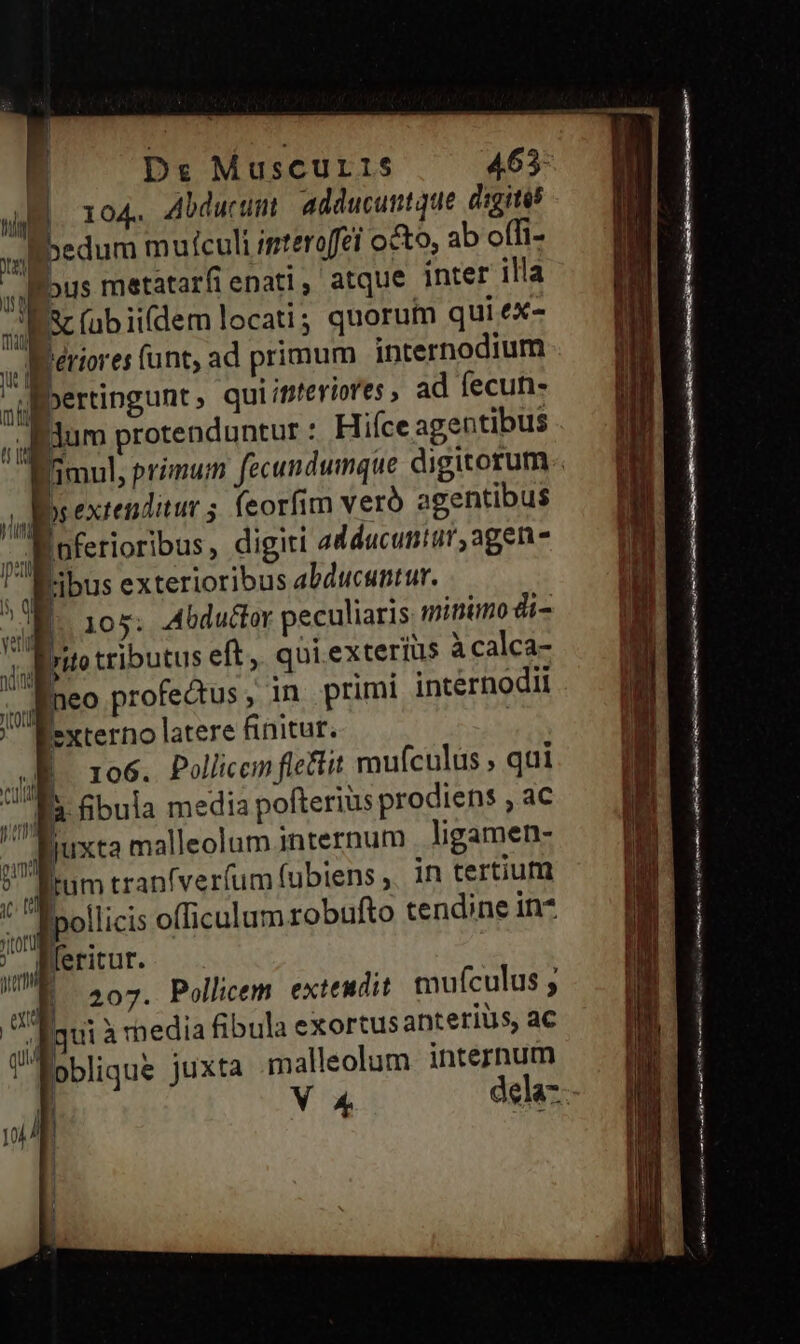 De Musculis 463
104. Abducunt adducuntque digitos
pedum muſculi interoſſei octo, ab oſſi-
bus metatarſi enati, atque inter illa
& ſub iiſdem locati; quorum qui ex-
teriores ſunt, ad primum internodium
pertingunt, qui interiores, ad ſecun-
dum protenduntur: Hiſce agentibus
ſimul, primum ſecundumque digitorum
os extenditur; ſeorſim verò agentibus
inferioribus, digiti adducuntur, agen-
tibus exterioribus abducuntur.
105. Abductor peculiaris minimo di-
gito tributus eſt, qui exteriùs à calca-
neo profectus, in primi internodii
externo latere finitur.
106. Pollicem flectit muſculus, qui
à fibula media poſteriùs prodiens, ac
juxta malleolum internum ligamen-
tum tranſverſum ſubiens, in tertium
pollicis oſſiculum robuſto tendine in-
ſeritur.
207. Pollicem extendit muſculus,
qui à media fibula exortus anteriùs, ac
oblique juxta malleolum internum
V 4 dela-